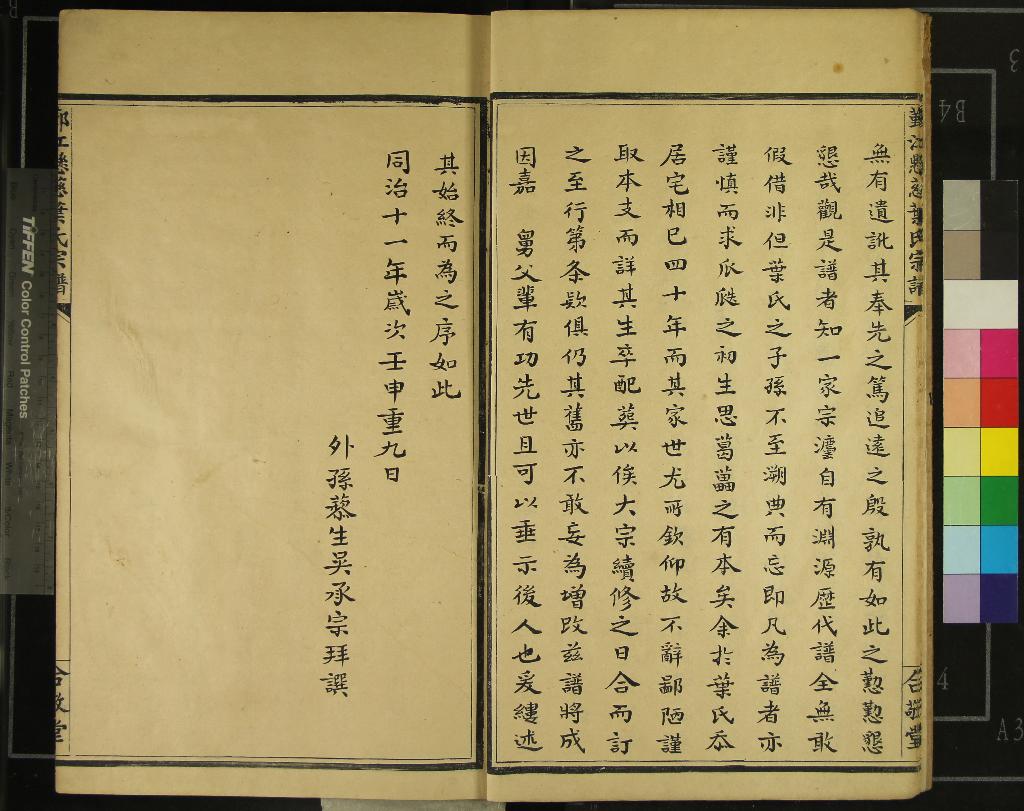 無有遺訛其奉先之篤追遠之殷孰有如此之懃懃懇
懇哉觀是譜者知一家宗灋自有淵源歷代譜全無敢
假借非但葉氏之子孫不至溯典而忘即凡為譜者亦
謹慎而求瓜瓞之初生思葛藟之有本矣余於葉氏忝
居宅相已四十年而其家世尤所欽仰故不辭鄙陋謹
取本支而詳其生卒配葬以俟大宗續修之日合而訂
之至行第条欵俱仍其舊亦不敢妄為增改茲譜將成
因嘉 舅父輩有功先世且可以垂示後人也爰縷述
其始終而為之序如此
同治十一年歲次壬申重九日
外孫藜生吳承宗拜譔
葉氏宗譜
TIFFEN Color Control Patches
B4
A3